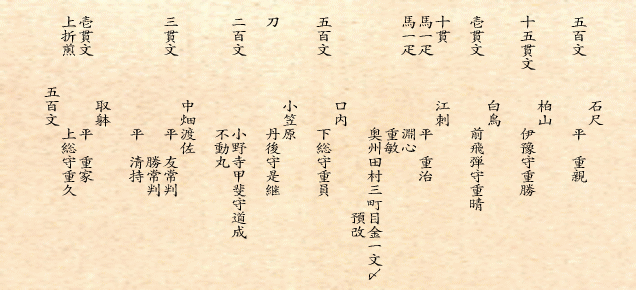 石尺
五百文　平　重親
柏山
十五貫文　伊豫守重勝
白鳥
壱貫文　前飛彈守重晴
十貫　江刺
馬一疋　平　重治
馬一疋　淵心
重敏
奥州田村三町目金一文〆
預改
口内
五百文　下総守重員
小笠原
刀　丹後守是継
二百文　小野寺甲斐守道成
不動丸
中畑渡佐
三貫文　平　友常判
勝常判
平　清持
取躰
壱貫文　平　重家
上折煎　上総守重久
五百文